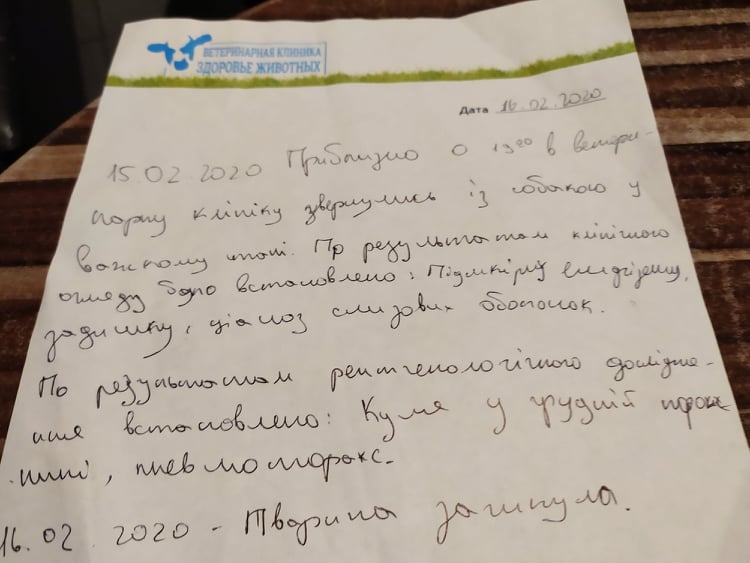 ВЕТЕРИНАРНАЯ КЛИНИКА
ЗДОРОВЬЕ ЖИВОТНЫХ
Дата 16.02.2020
15.02.2020 Приблизно о 19⁰⁰ в ветери-
нарну клініку звернулись із собакою у
важкому стані. По результатам клінічного
огляду було встановлено: Підшкірну емфізему,
задишку, ціаноз слизових оболонок.
По результатам рентгенологічного дослідже-
ння встановлено: Куля у грудній порож-
нині, пневмоторакс.
16.02.2020 - Тварина загинула.